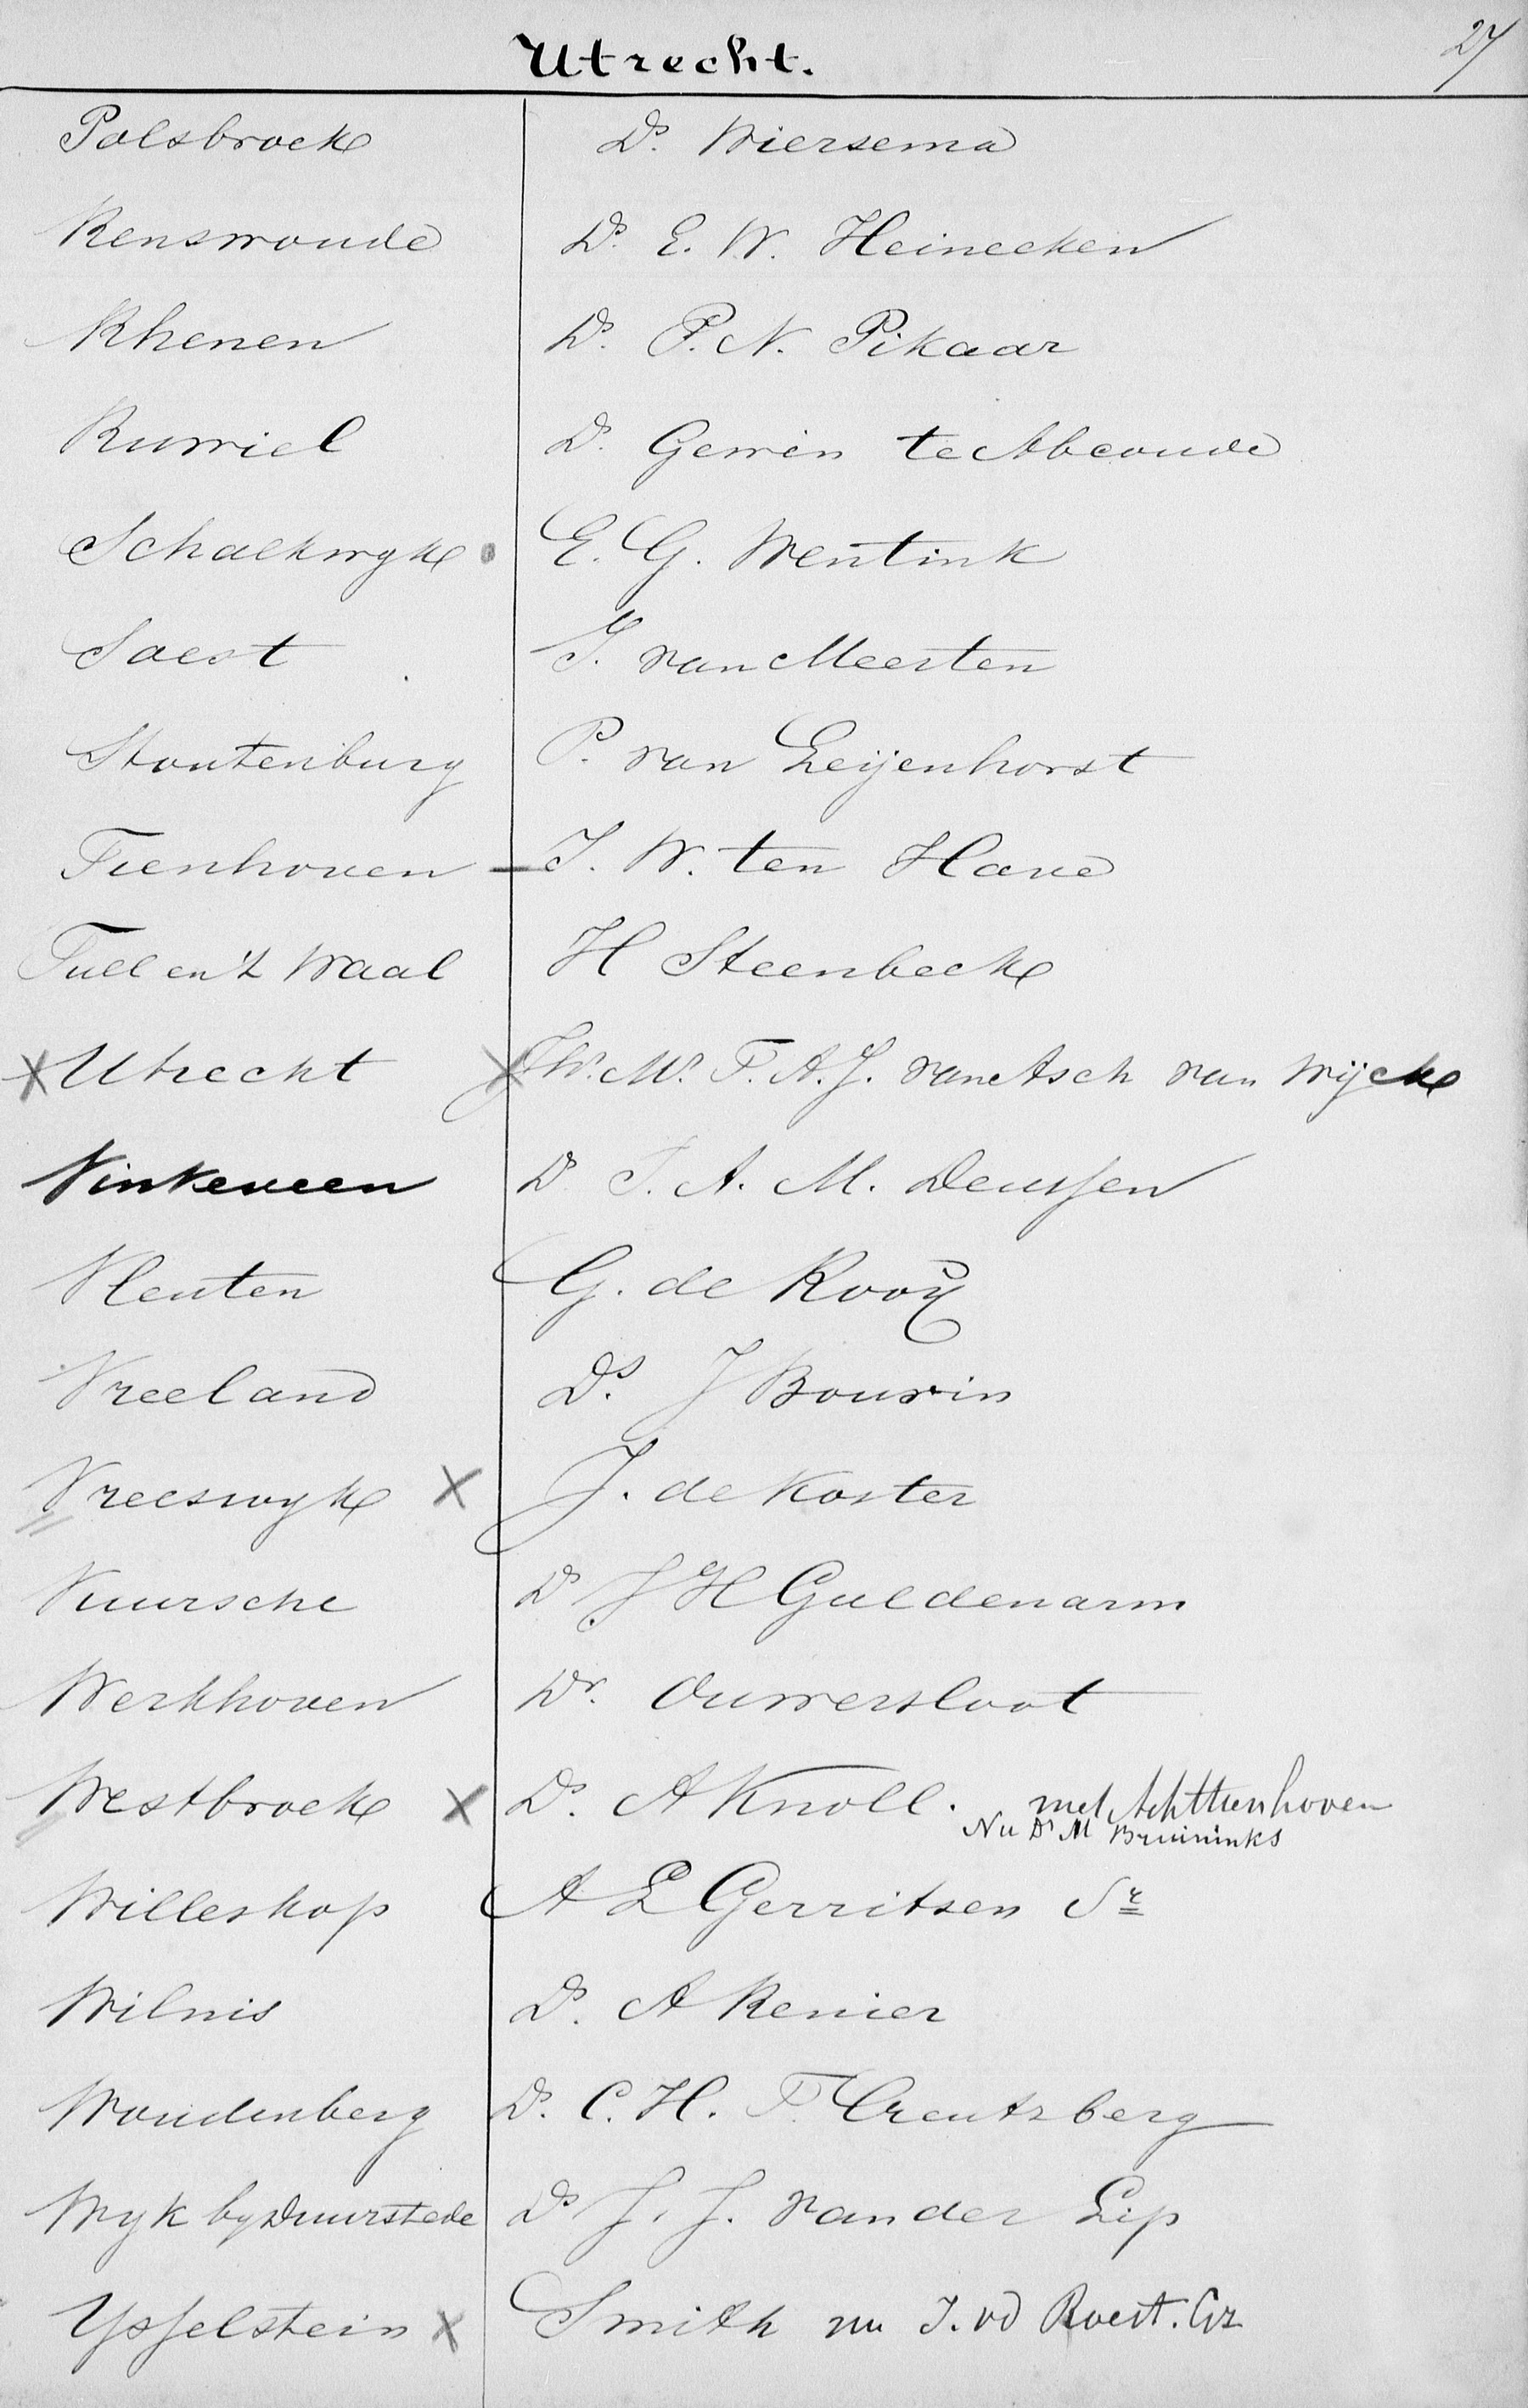 27
Utrecht.
Polsbroek Ds. Wiersema
Renswoude Ds. E. W. Heinecken
Rhenen Ds. P. N. Pikaar
Ruwiel Ds. Gewin te Abcoude
Schalkwyk E. G. Wentink
Soest G. van Meerten
Stoutenburg P. van Leijenhorst
Tienhoven - J. W. ten Have
Tull en 't Waal H Steenbeek
X Utrecht X Jhr. Mr. F. A. J. van Asch van Wijck
Vinkeveen Ds J. A. M. Deussen
Vleuten G. de Rooy
Vreeland Ds. J Bouvin
Vreeswyk X J. de Koster
Vuursche Ds J H Guldenarm
Werkhoven Dr. Ouwersloot
Westbroek X Ds. A Knoll. met Achttienhoven
Nu Ds M Bruininks
Willeskop A L Gerritsen Sr
Wilnis Ds. A Renier
Woudenberg Ds. C. H. F. Creutzberg
Wyk by Duurstede Ds J. J. van der Lip
Ysselstein X Smith nu J. vd Roest. Gz